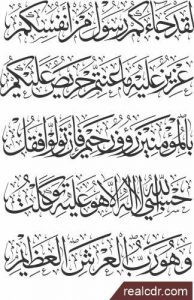 لقد جاءكم رسول من أنفسكم
عزيز عليه ما عنتم حريص عليكم
بالمؤمنين رءوف رحيم فإن تولوا فقل
حسبي الله لا إله إلا هو عليه توكلت
وهو رب العرش العظيم
realcdr.com